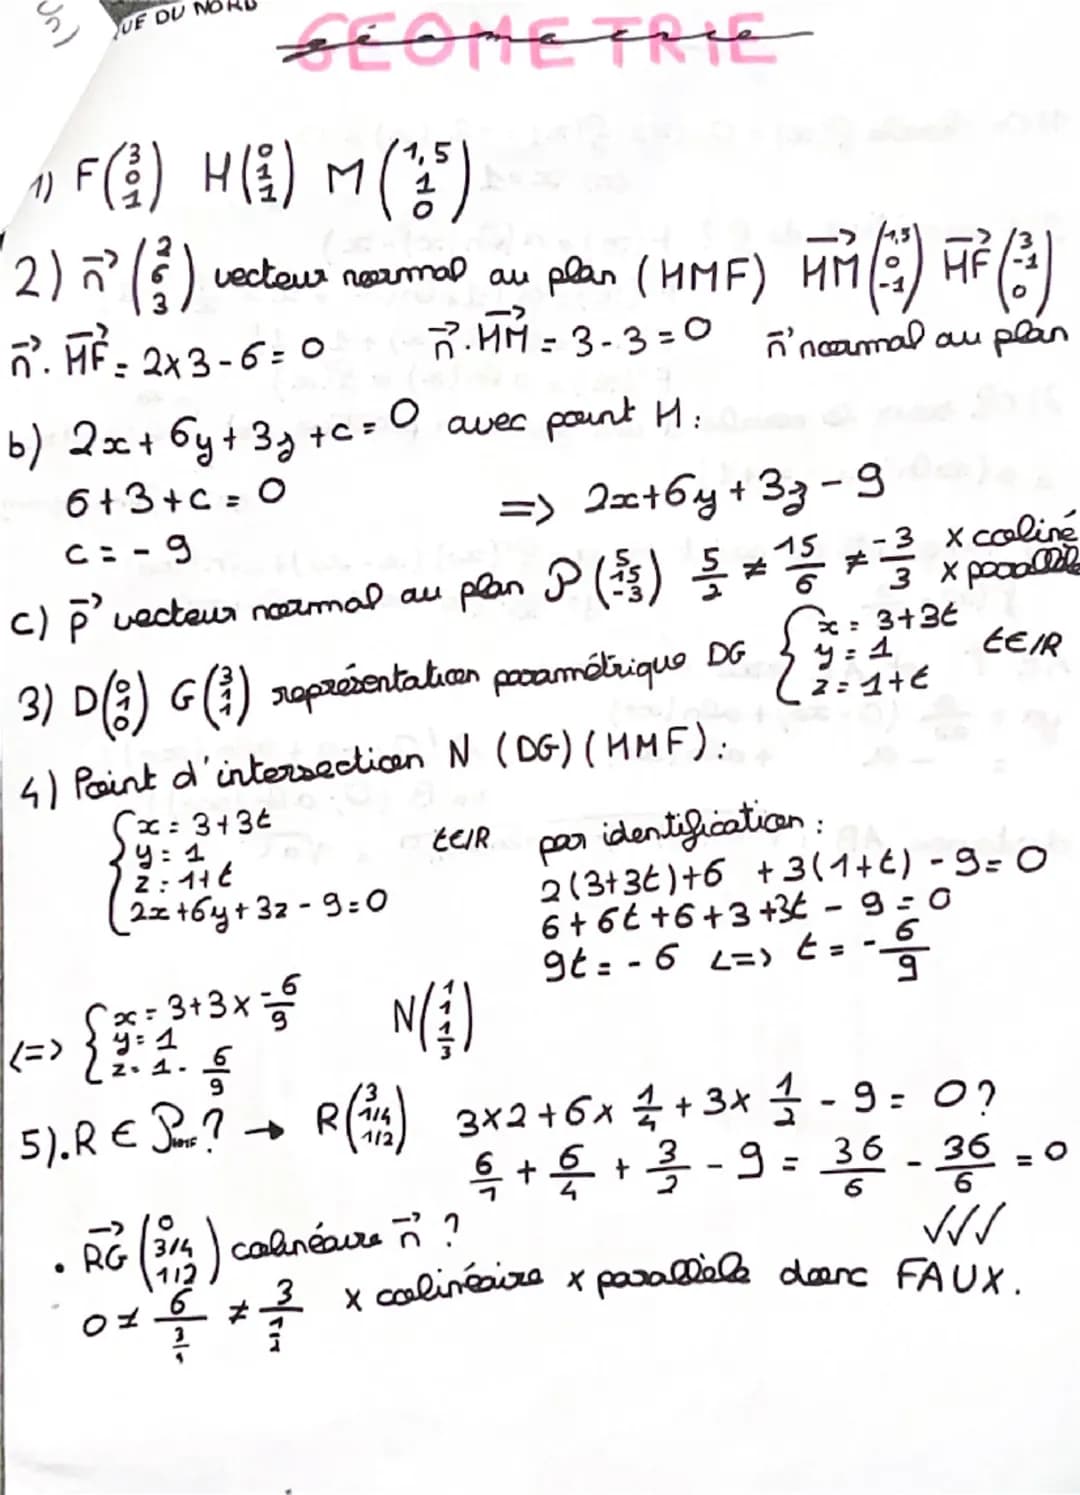 UE DU NORD
GEOMETRIE
1) F(3 0 1) H(0 1 1) M(1,5 1 0)
2) n→(2 6 3) vecteur normal au plan (HMF) HM→(1,5 0 -1) HF→(3 -1 0)
n→. HF→ = 2x3-6=0 n→.HM→ = 3-3=0 n→ normal au plan
b) 2x+6y+3z+c=0 avec point H:
6+3+c=0 => 2x+6y+3z-9
c=-9
c) p→ vecteur normal au plan P(5 15 -3) 5/2 ≠ 15/6 ≠ -3/3 x coliné x parallèle
3) D(0 1 0) G(3 1 1) représentation paramétrique DG { x = 3+3t y = 1 z = 1+t t∈IR
4) Point d'intersection N (DG)(HMF):
{ x = 3+3t y = 1 z = 1+t 2x+6y+3z-9=0 t∈IR
par identification:
2(3+3t)+6 +3(1+t)-9=0
6+6t+6+3+3t-9=0
9t=-6 <=> t=-6/9
<=> { x = 3+3x-6/9 y = 1 z = 1-6/9 N(1 1 1/3)
5).R ∈ P HMF? → R(3 1/4 1/2) 3x2+6x 1/4 +3x 1/2 -9= 0?
6/1 + 6/4 + 3/2 - 9 = 36/6 - 36/6 = 0
. RG→(0 3/4 1/2) colinéaire n→ ?
0 ≠ 6/(3/4) ≠ 3/(1/2) x colinéaire x parallèle donc FAUX.